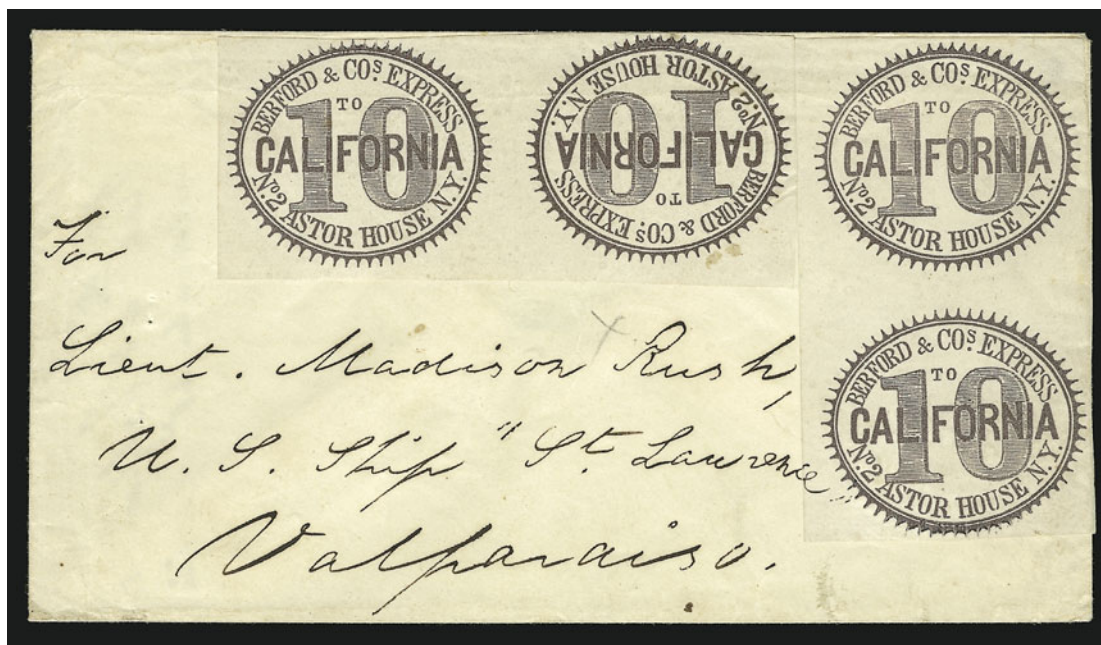 BERFORD & COS EXPRESS
TO
10
CALIFORNIA
No. 2 ASTOR HOUSE N.Y.
BERFORD & COS EXPRESS
TO
10
CALIFORNIA
No. 2 ASTOR HOUSE N.Y.
BERFORD & COS EXPRESS
TO
10
CALIFORNIA
No. 2 ASTOR HOUSE N.Y.
BERFORD & COS EXPRESS
TO
10
CALIFORNIA
No. 2 ASTOR HOUSE N.Y.
For
Lieut. Madison Rush,
U. S. Ship "St. Lawrence"
Valparaiso.